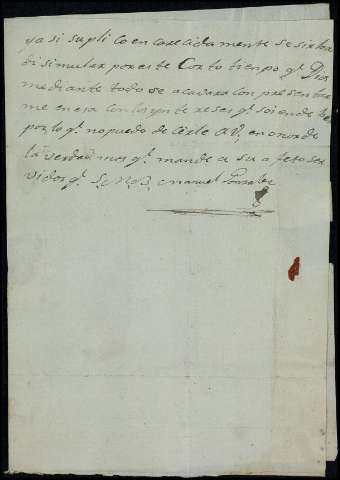 ya si suplico encarecidamente se sirba
disimular por este Corto tiempo q.e Dios
mediante todo se acavara con presentar
me en esa con los yntereses q.e soi en de
por lo q.e no puedo decirle a V. en onor de
la verdad mas q.e mande a su afeto ser
vidor q.e S. M. B. Manuel Gonzalez